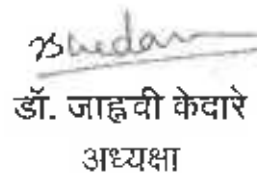 डॉ. जाह्नवी केदारे
अध्यक्षा